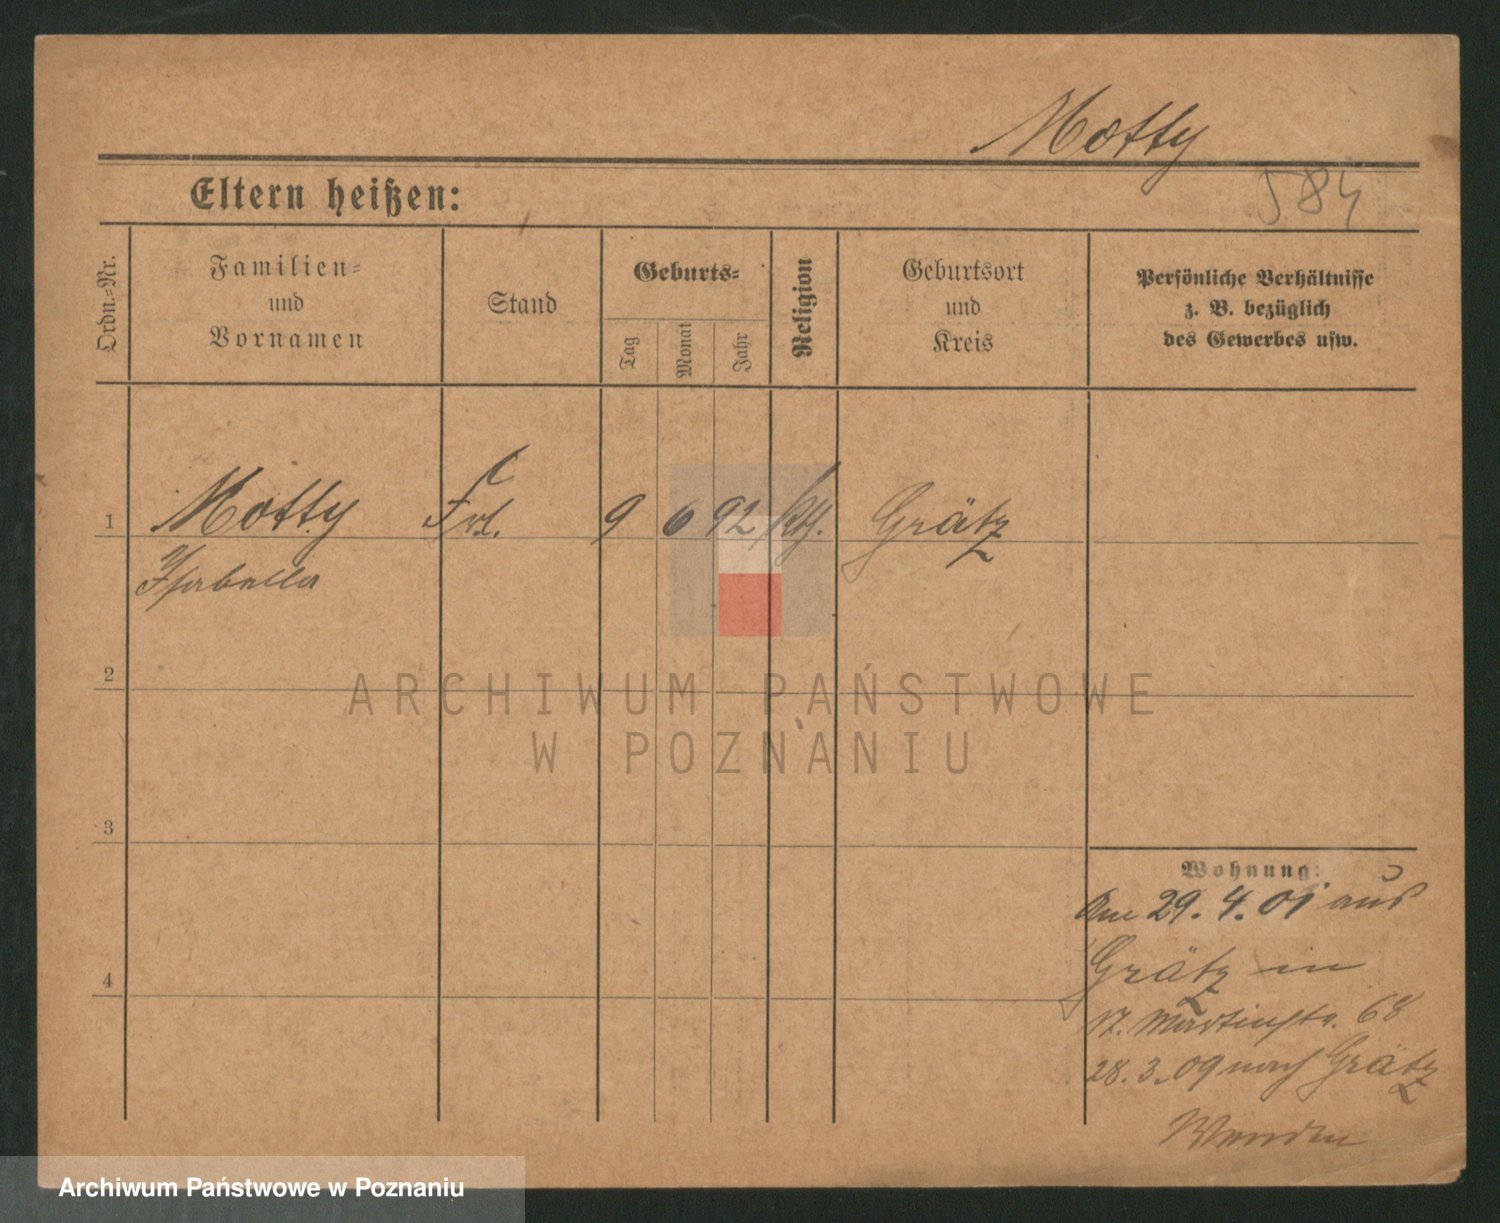 Motty
584
Eltern heißen:
Ordn.-Nr.
Familien- und Vornamen
Stand
Geburts-
Tag
Monat
Jahr
Religion
Geburtsort und Kreis
Persönliche Verhältnisse
z. B. bezüglich
des Gewerbes usw.
1
Motty
Frl.
9
6
92
kth.
Grätz
Isabella
2
ARCHIWUM PAŃSTWOWE
W POZNANIU
3
4
Wohnung:
29. 4. 01 aus
Grätz in
St. Martinstr. 68
28. 3. 09 nach Grätz
Archiwum Państwowe w Poznaniu